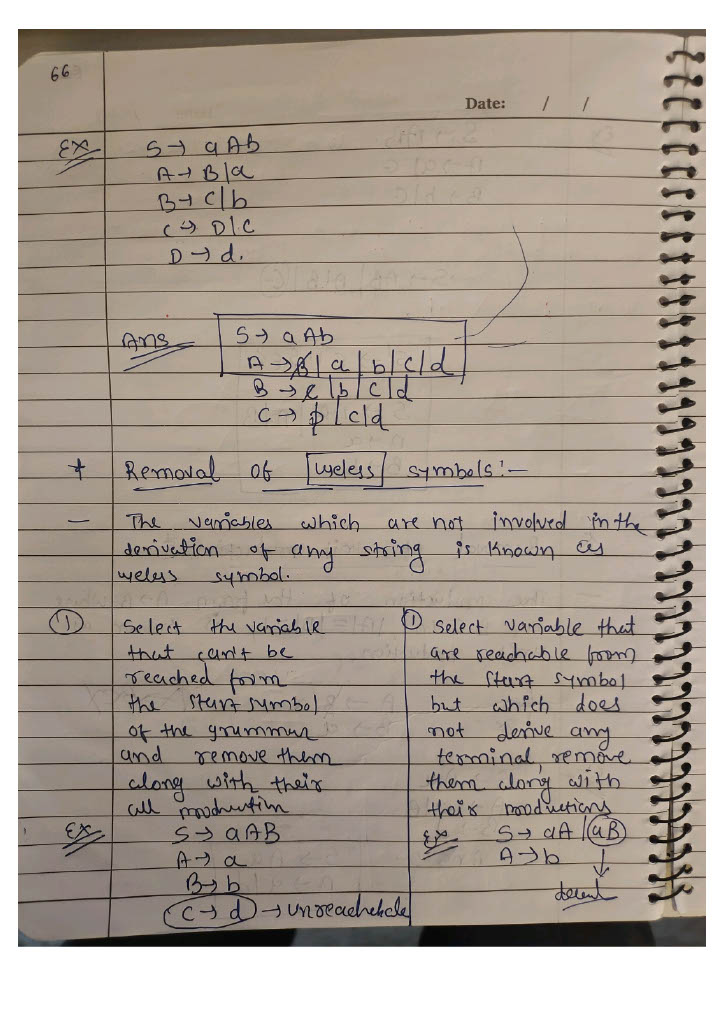 66
Date: / /
Ex S → aAb
A → B|a
B → C|b
C → D|C
D → d.
Ans S → aAb
A → B|a|b|c|d
B → C|b|c|d
C → D|c|d
* Removal of useless symbols:-
- The variables which are not involved in the
derivation of any string is known as
useless symbol.
(1) Select the variable
that can't be
reached form
the start symbol
of the grammar
and remove them
along with their
all production
Ex S → aAB
A → a
B → b
C → d → unreachebale
(1) Select variable that
are reachable from
the start symbol
but which does
not derive any
terminal, remove
them along with
their productions
Ex S → aA|aB
A → b